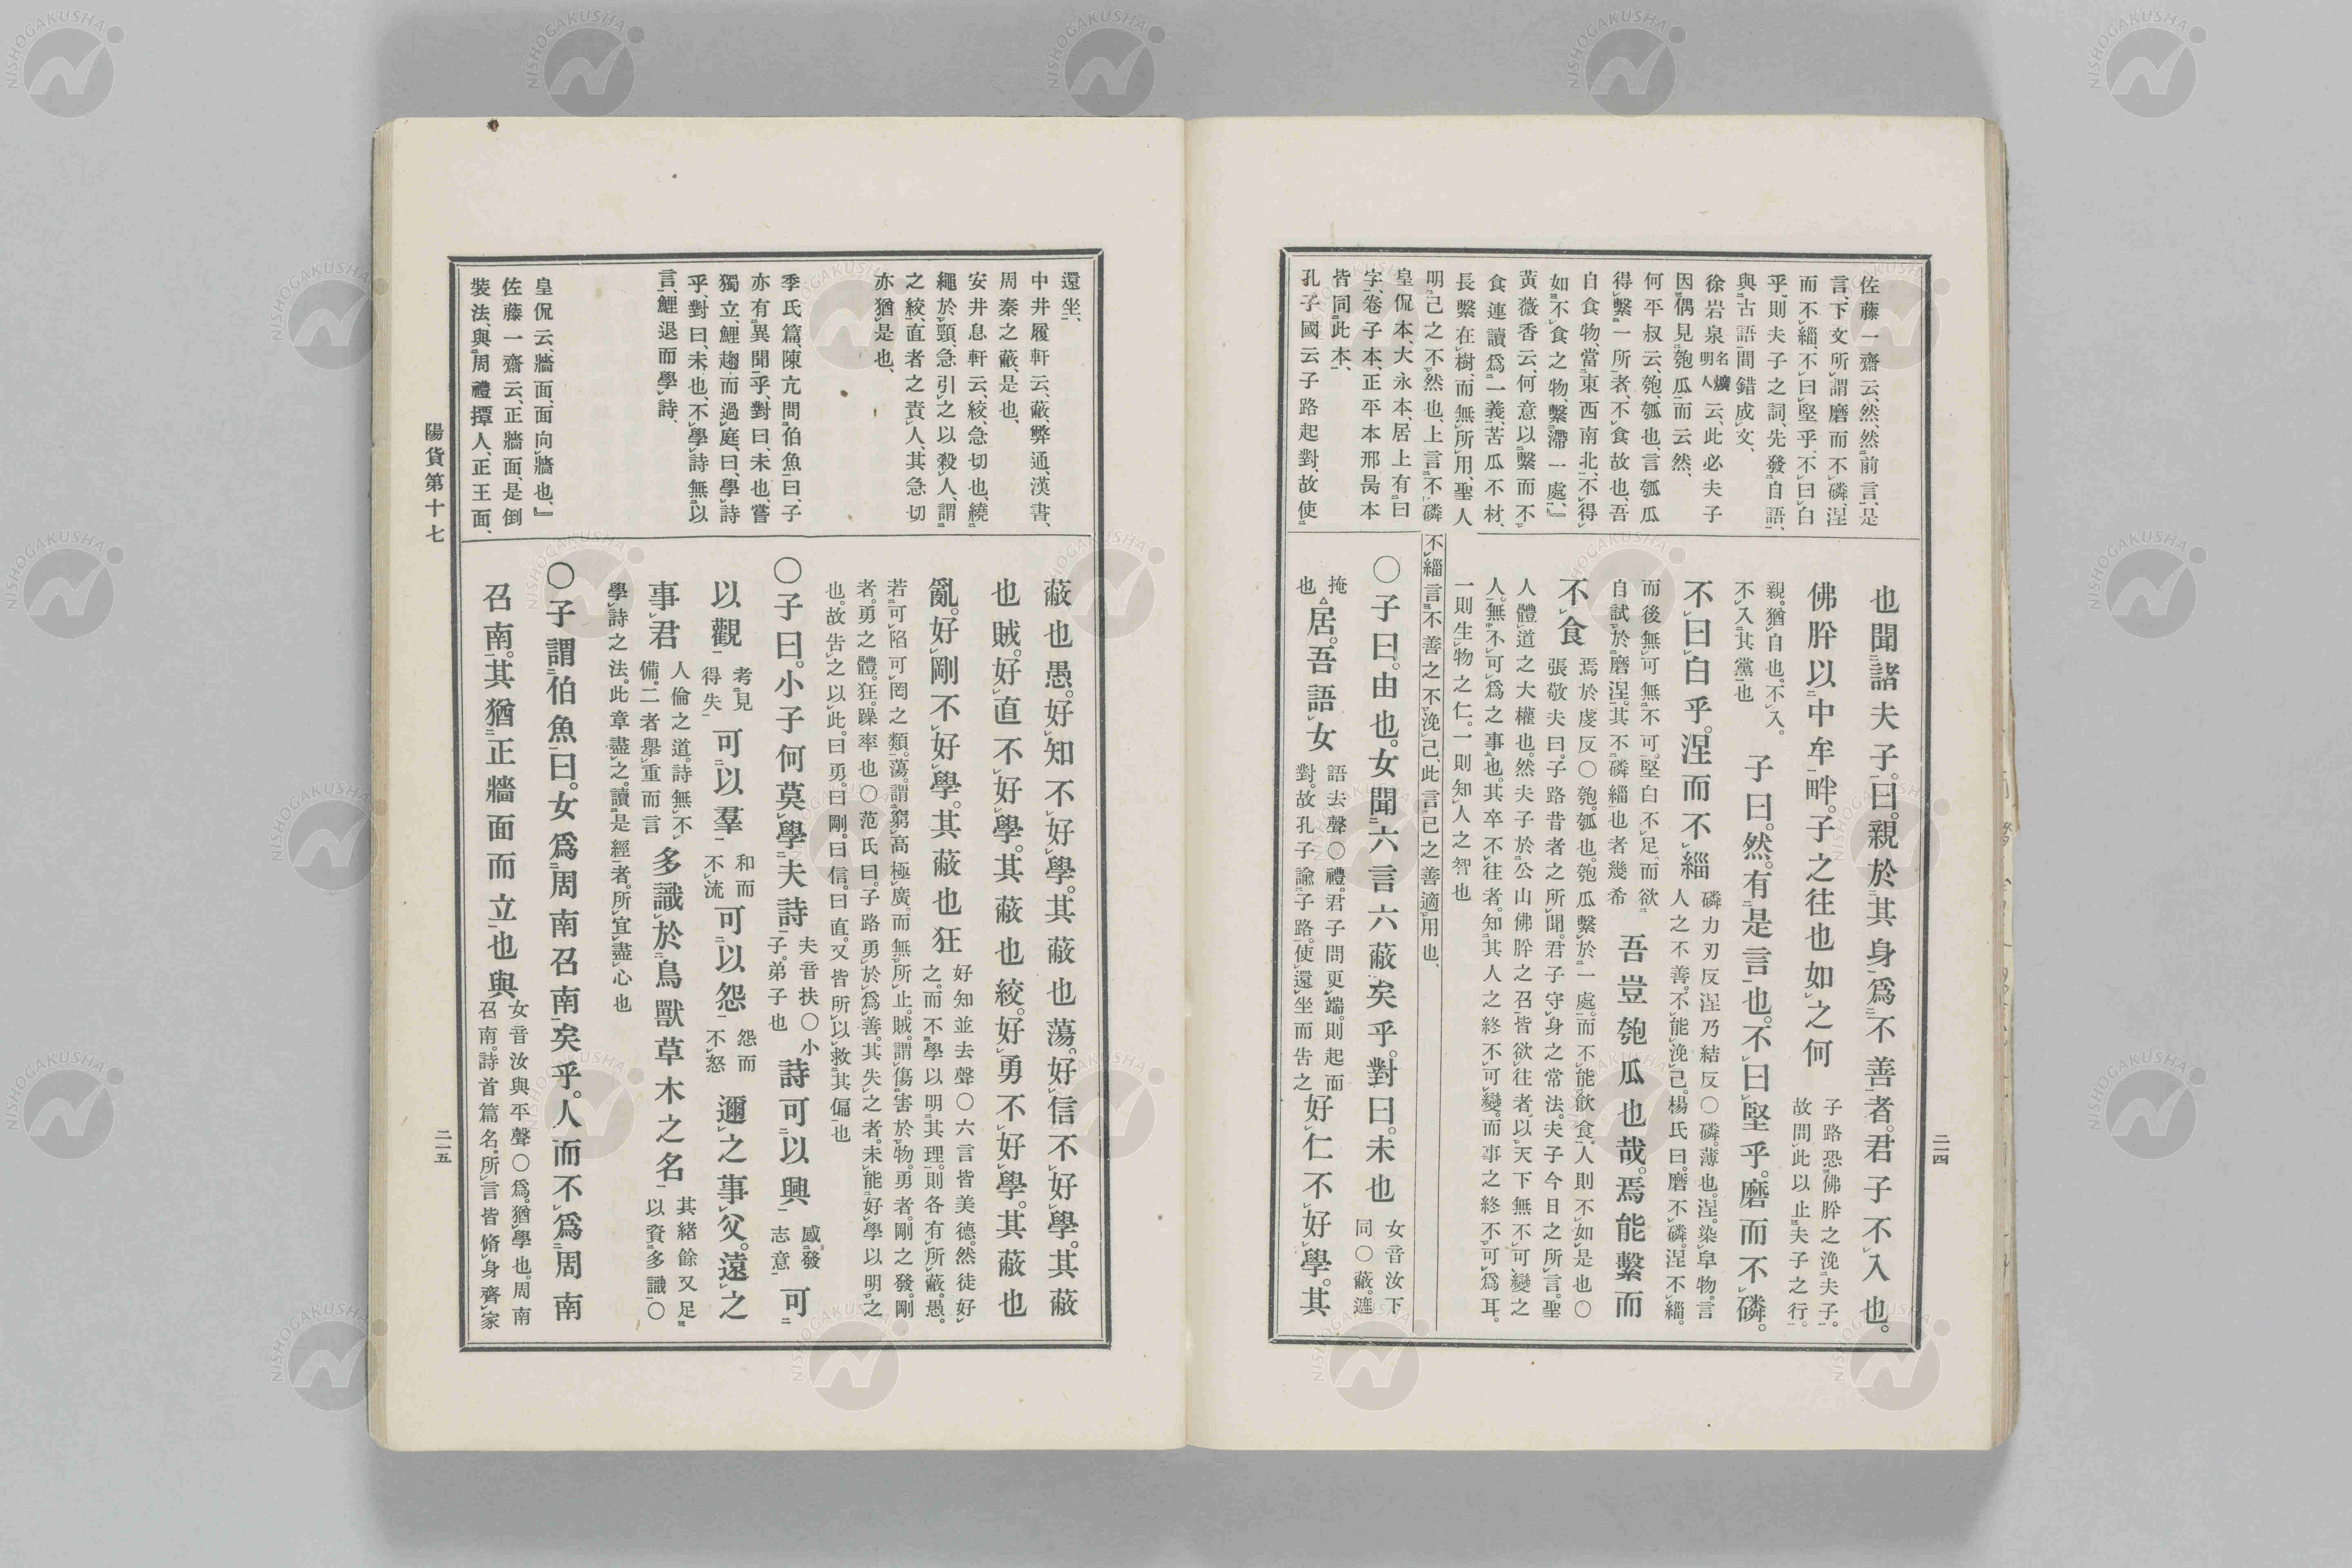 佐藤一齋云、然、然前言、是
言、下文所謂磨而不磷、涅
而不緇、不曰堅乎、不曰白
乎、則夫子之詞、先發自語、
與古語間錯成文、
徐岩泉名爌明人云、此必夫子
因偶見匏瓜而云然、
何平叔云、匏、瓠也、言瓠瓜
得繫一所者、不食故也、吾
自食物、當東西南北、不得
如不食之物、繫滯一處、』
黃薇香云、何意以繫而不
食連讀爲一義、苦瓜不材、
長繫在樹、而無所用、聖人
明己之不然也、上言不磷
不緇、言不善之不浼己、此言己之善適用也、
皇侃本、大永本、居上有曰
字、卷子本、正平本邢昺本
皆同此本、
孔子國云子路起對、故使
也聞諸夫子。曰。親於其身爲不善者。君子不入也。
佛肸以中牟畔。子之往也如之何
子路恐佛肸之浼夫子。
故問此以止夫子之行。
親。猶自也。不入。
不入其黨也
子曰。然。有是言也。不曰堅乎。磨而不磷。
不曰白乎。涅而不緇
磷力刃反涅乃結反○磷。薄也。涅。染皁物。言
人之不善。不能浼己。楊氏曰。磨不磷。涅不緇。
而後無可無不可。堅白不足。而欲
自試於磨涅。其不磷緇也者幾希
吾豈匏瓜也哉。焉能繫而
不食
焉於虔反○匏。瓠也。匏瓜繫於一處。而不能飮食。人則不如是也○
張敬夫曰。子路昔者之所聞。君子守身之常法。夫子今日之所言。聖
人體道之大權也。然夫子於公山佛肸之召皆欲往者。以天下無不可變之
人。無不可爲之事也。其卒不往者。知其人之終不可變。而事之終不可爲耳。
一則生物之仁。一則知人之智也
○子曰。由也。女聞六言六蔽矣乎。對曰。未也
女音汝下
同○蔽。遮
掩
也
居。吾語女
語去聲○禮。君子問更端。則起而
對。故孔子諭子路。使還坐而告之
好仁不好學。其
二一四
還坐、
中井履軒云、蔽、弊通、漢書、
周秦之蔽、是也、
安井息軒云、絞、急切也、繞
繩於頸、急引之以殺人、謂
之絞、直者之責人其急切
亦猶是也、
季氏篇、陳亢問伯魚曰、子
亦有異聞乎、對曰、未也、嘗
獨立、鯉趨而過庭、曰、學詩
乎、對曰、未也、不學詩無以
言、鯉退而學詩、
皇侃云、牆面、面向牆也、』
佐藤一齋云、正牆面、是倒
裝法、與周禮撢人、正王面、
蔽也愚。好知不好學。其蔽也蕩。好信不好學。其蔽
也賊。好直不好學。其蔽也絞。好勇不好學。其蔽也
亂。好剛不好學。其蔽也狂
好知並去聲○六言皆美德。然徒好
之。而不學以明其理。則各有所蔽。愚。
若可陷可罔之類。蕩。謂窮高極廣。而無所止。賊。謂傷害於物。勇者。剛之發。剛
者。勇之體。狂。躁率也○范氏曰。子路勇於爲善。其失之者。未能好學以明之
也。故告之以此。曰勇。曰剛。曰信。曰直。又皆所以救其偏也
○子曰。小子何莫學夫詩
夫音扶○小
子。弟子也
詩可以興
感發
志意
可
以觀
考見
得失
可以羣
和而
不流
可以怨
怨而
不怒
邇之事父。遠之
事君
人倫之道。詩無不
備。二者舉重而言
多識於鳥獸草木之名
其緖餘又足
以資多識○
學詩之法。此章盡之。讀是經者。所宜盡心也
○子謂伯魚曰。女爲周南召南矣乎。人而不爲周南
召南。其猶正牆面而立也與
女音汝與平聲○爲。猶學也。周南
召南。詩首篇名。所言皆脩身齊家
陽貨第十七
二一五
NISHOGAKUSHA